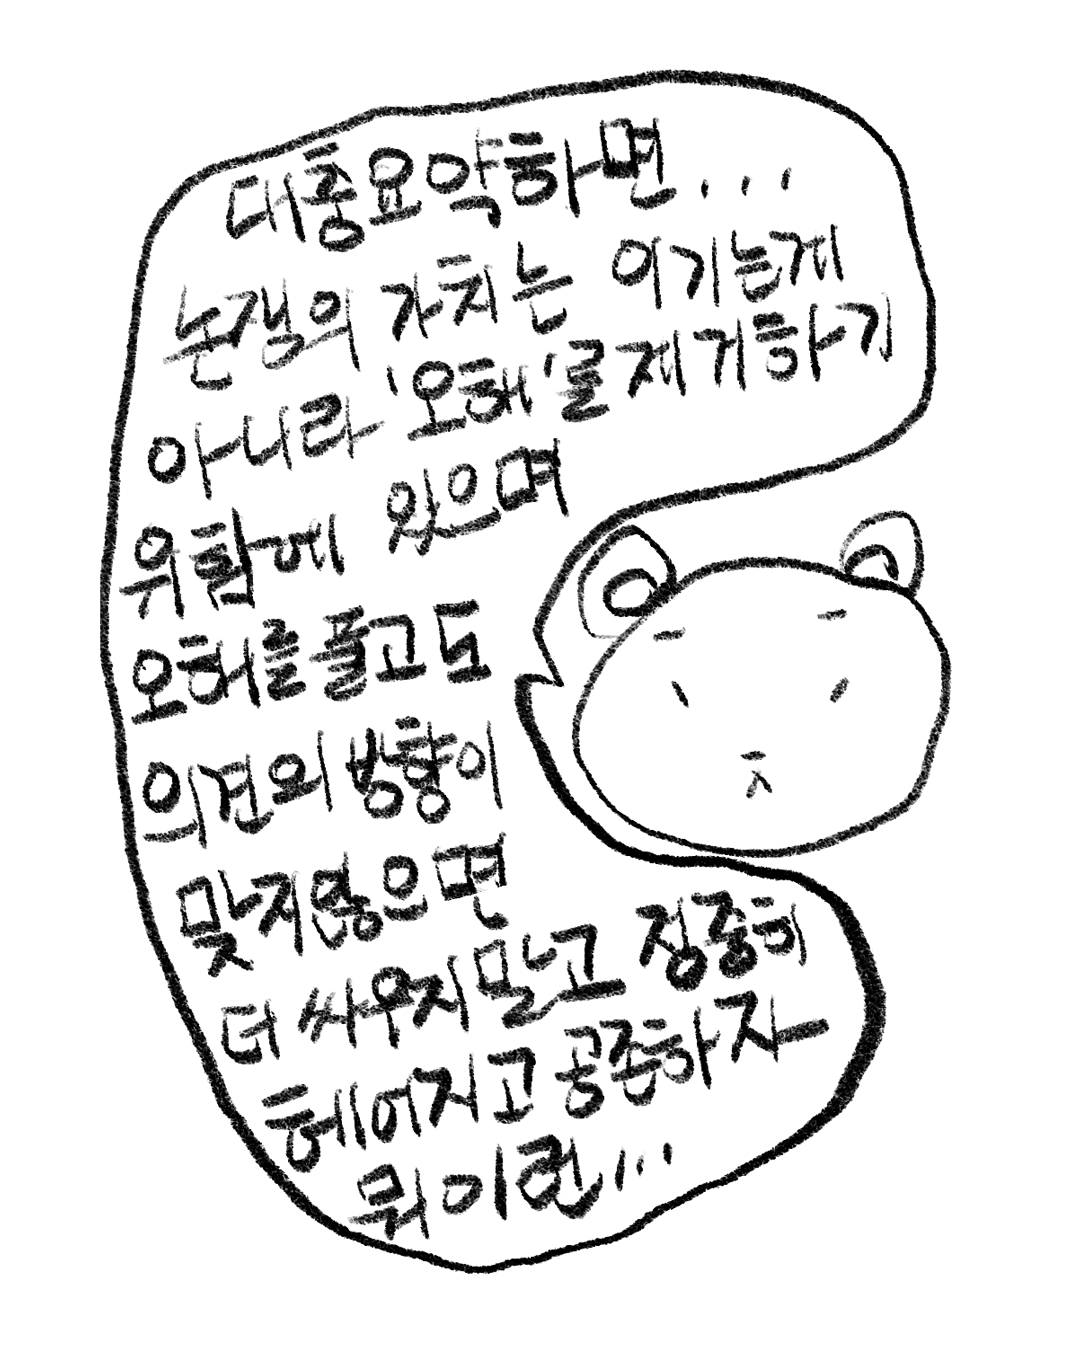 대충요약하면...
논쟁의 가치는 이기는게
아니라 '오해'를제거하기
위함에 있으며
오해를풀고도
의견의방향이
맞지않으면
더 싸우지말고 정중히
헤어지고 공존하자
뭐이런...